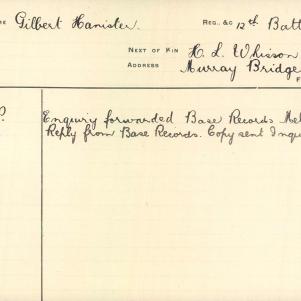 Gilbert Hanister. REG., &C 12th Batt
NEXT OF KIN H. L. Whisson
ADDRESS Murray Bridge
Enquiry forwarded Base Records Mel
Reply from Base Records. Copy sent Inqu